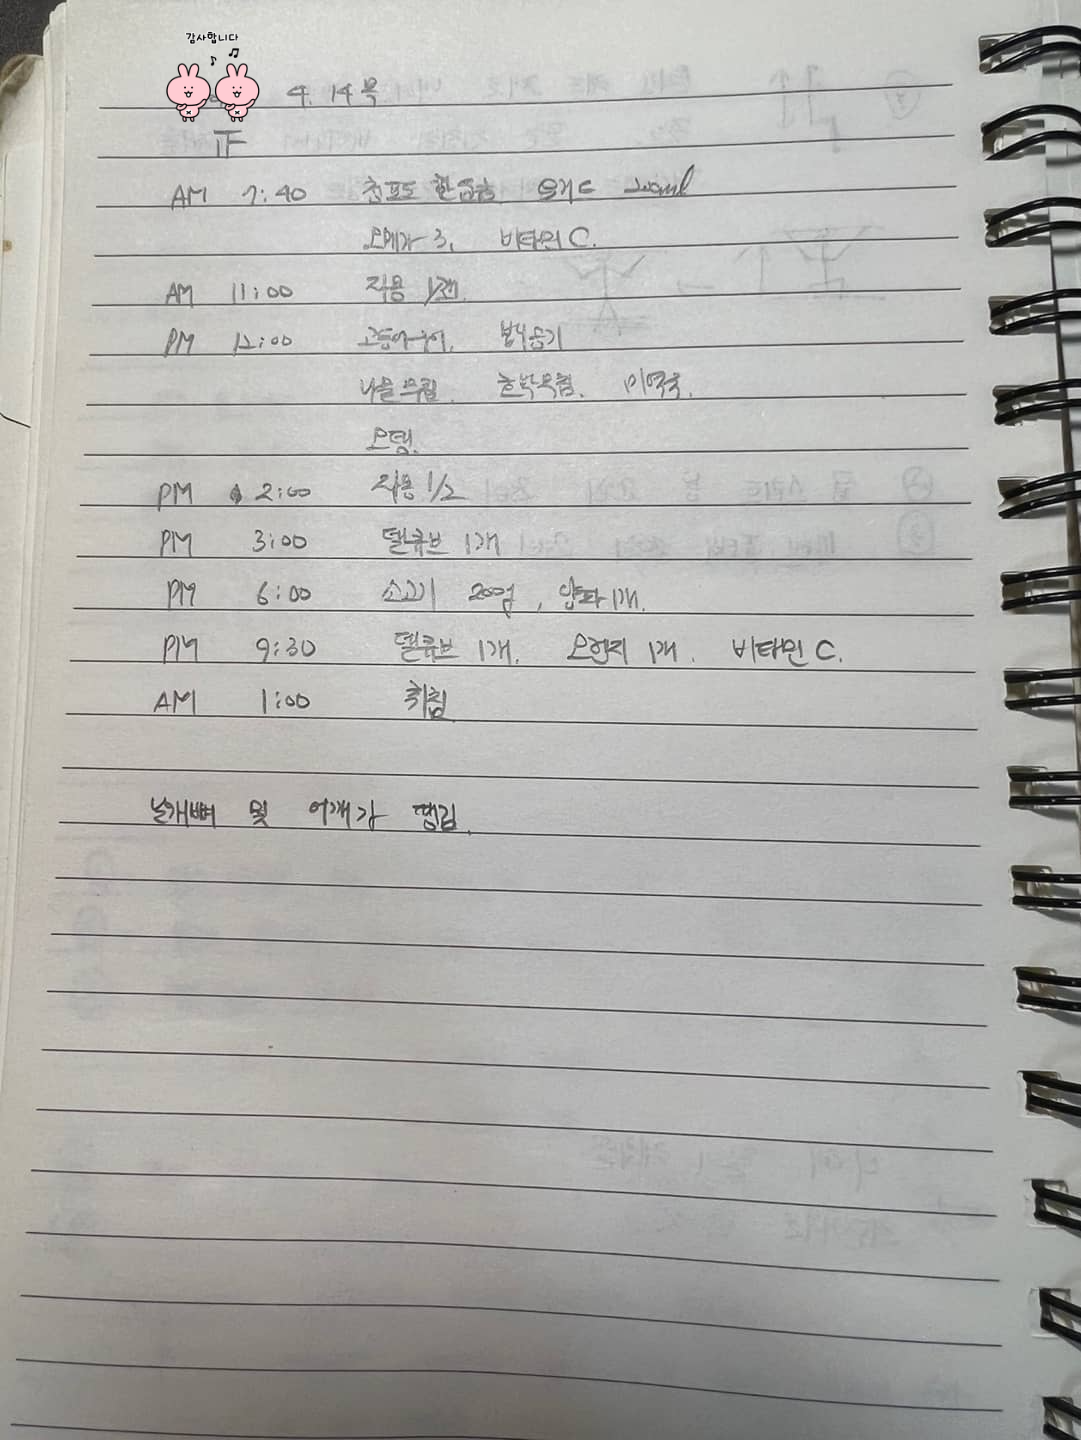 감사합니다
4. 14 목
正
AM 7:40 청포도 한웅큼 요거트 200ml
오메가 3. 비타민 C.
AM 11:00 자몽 1/2개.
PM 12:00 고등어구이. 밥1공기
나물무침. 호박무침. 미역국.
오뎅.
PM 2:00 자몽 1/2
PM 3:00 델큐브 1개
PM 6:00 소고기 200g, 양파 1개.
PM 9:30 델큐브 1개. 오렌지 1개. 비타민 C.
AM 1:00 취침
날개뼈 및 어깨가 땡김.